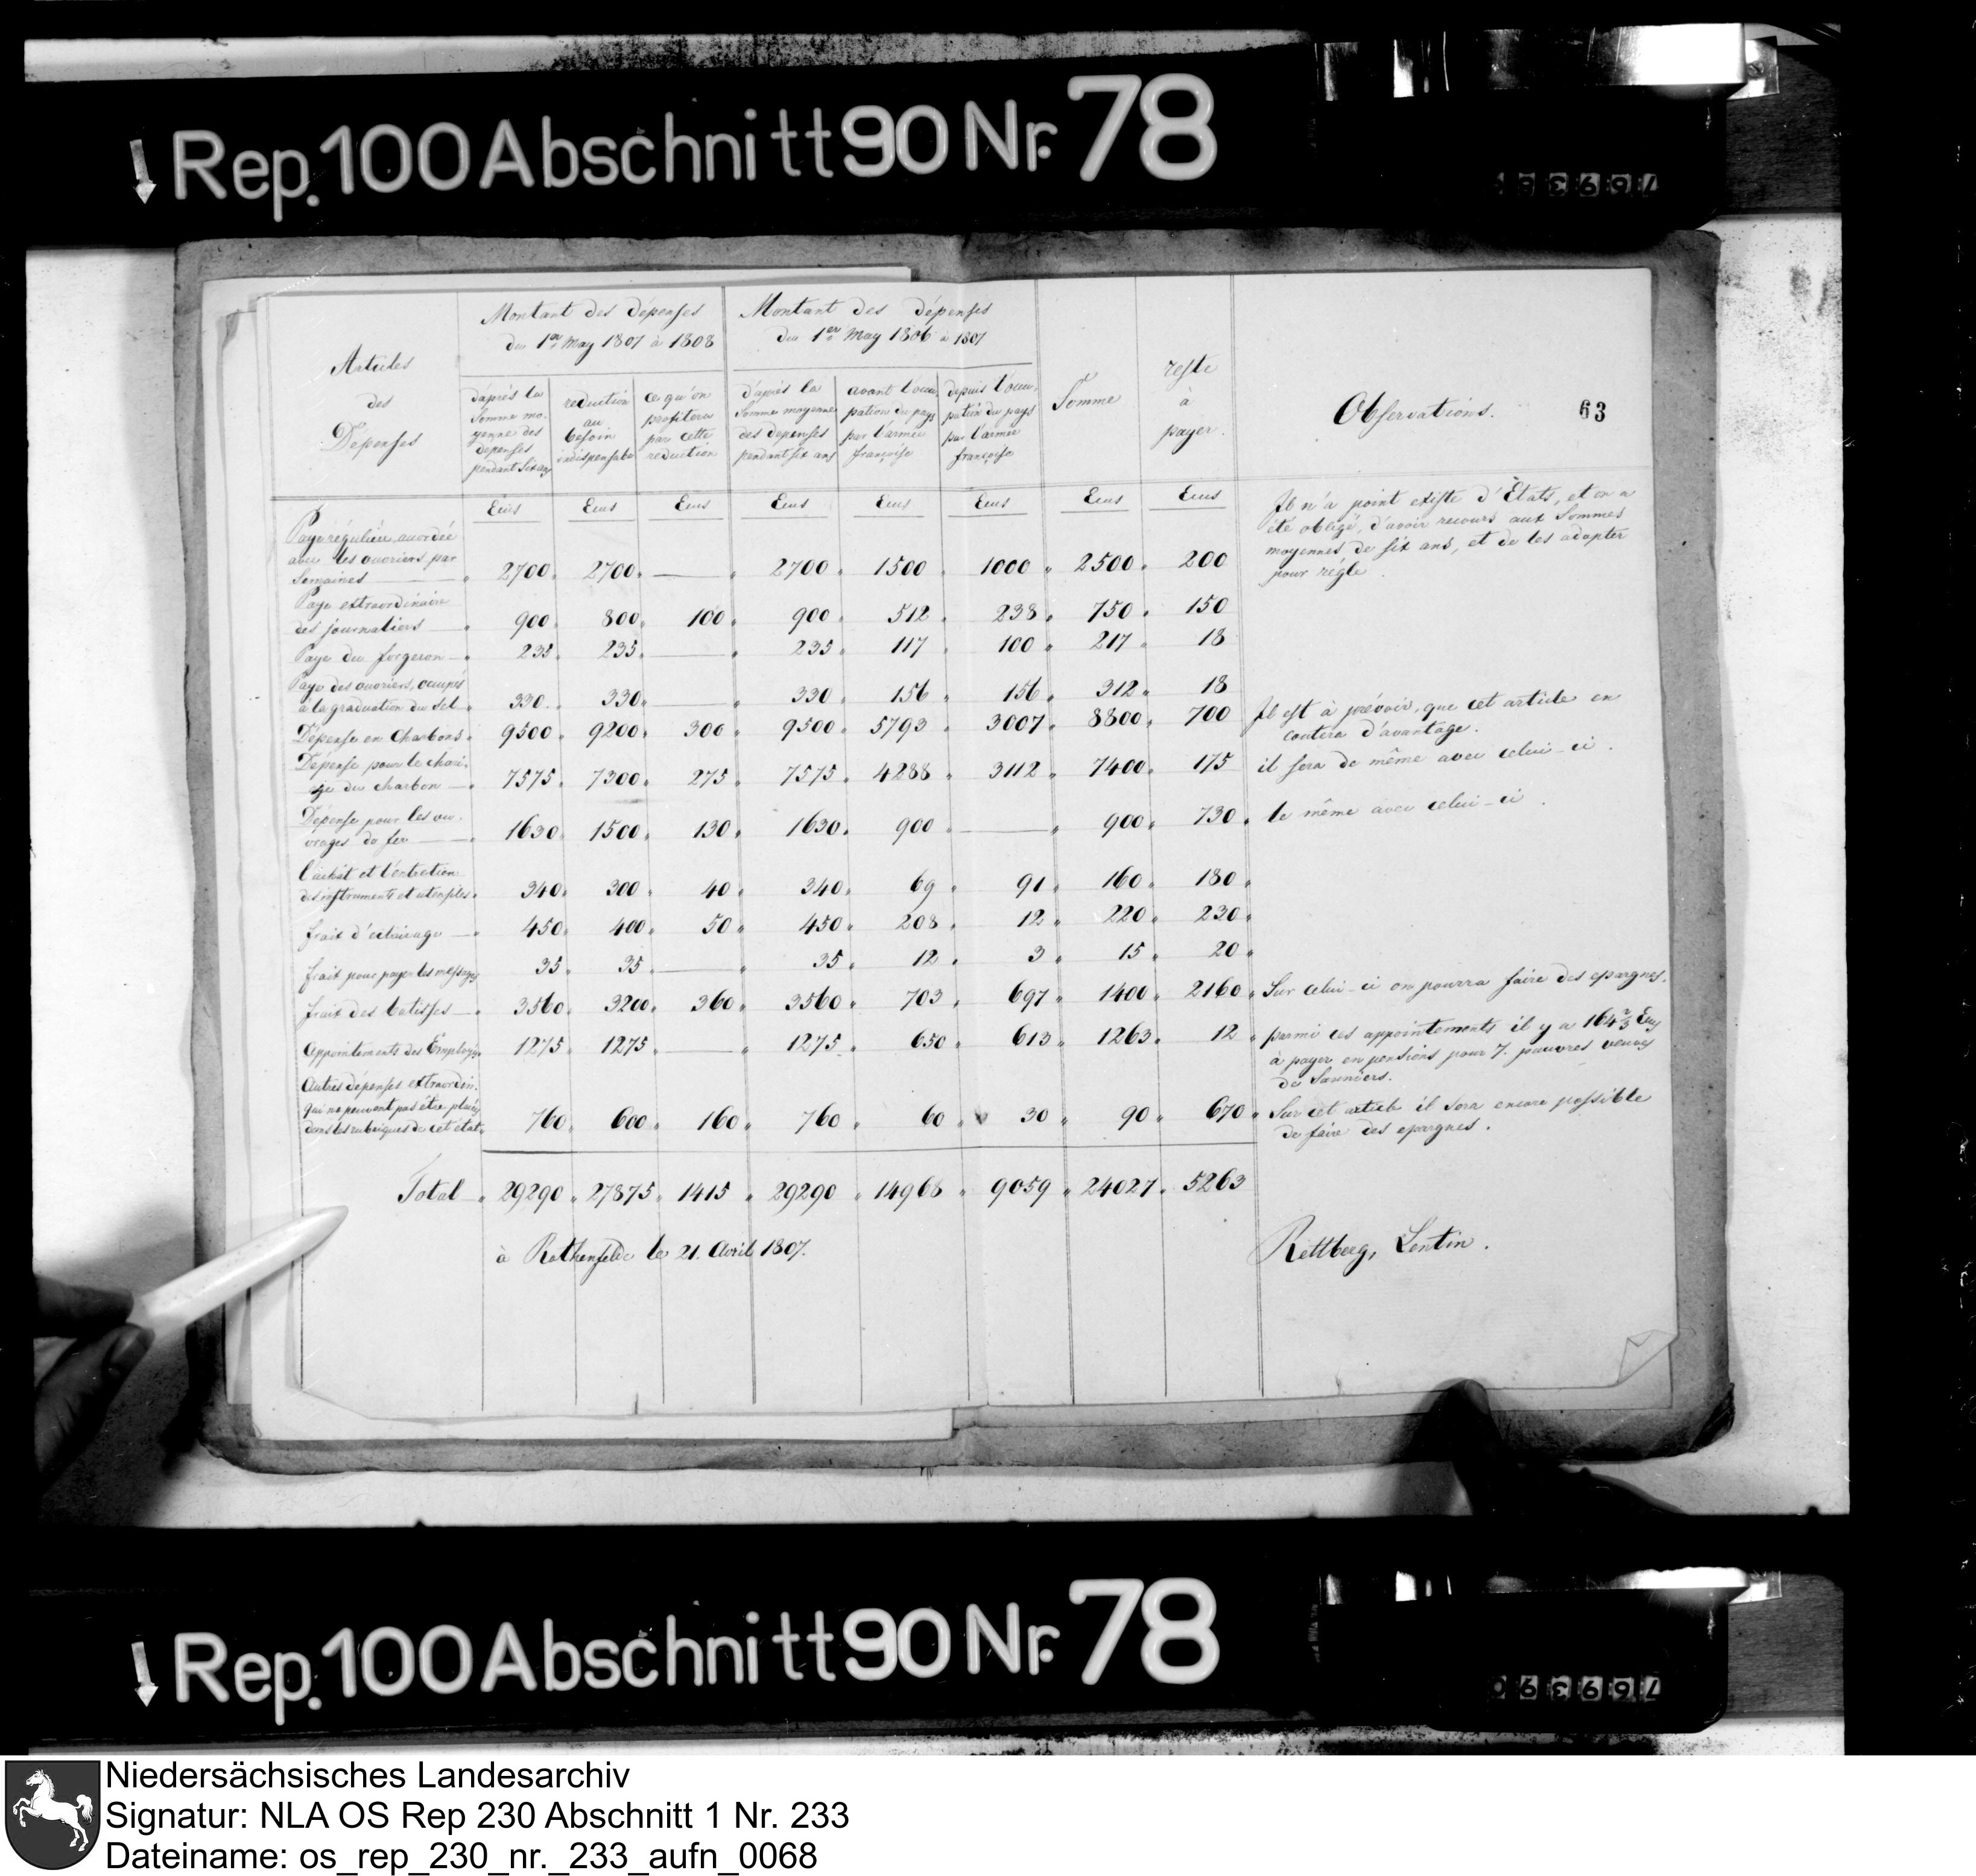 Rep. 100 Abschnitt 90 Nr. 78
Articles des Dépenses
Montant des dépenses du 1er May 1807 à 1808
Montant des dépenses du 1er May 1806 à 1807
d'après la Somme moyenne des depenses pendant six ans
reduction au besoin indispensable
ce qu'on profitera par cette reduction
d'après la Somme moyenne des depenses pendant six ans
avant l'occupation du pays par l'armée françoise
depuis l'occupation du pays par l'armée françoise
Somme
reste à payer.
Observations.
63
Écus Écus Écus Écus Écus Écus Écus Écus
Paye régulière, accordée
avec les ouvriers par
Semaines 2700 2700 — 2700 1500 1000 2500 200
Il n'a point existe d'États, et on a
été obligé, d'avoir recours aux Sommes
moyennes de six ans, et de les adopter
pour régle.
Paye extraordinaire
des journaliers 900 800 100 900 512 238 750 150
Paye du forgeron 235 235 — 235 117 100 217 18
Paye des ouvriers, occupés
à la graduation du Sel 330 330 — 330 156 156 312 18
Dépense en Charbons 9500 9200 300 9500 5793 3007 8800 700
Il est à prévoir, que cet article en
coutera d'avantage.
Dépense pour le chari-
age du charbon 7575 7300 275 7575 4288 3112 7400 175
il sera de même avec celui-ci.
Dépense pour les ou-
vrages de fer 1630 1500 130 1630 900 — 900 730
le même avec celui-ci.
l'achât et l'entretien
des instruments et utensiles 340 300 40 340 69 91 160 180
frais d'eclairage 450 400 50 450 208 12 220 230
frais pour payer les messages 35 35 — 35 12 3 15 20
frais des batisses 3560 3200 360 3560 703 697 1400 2160
Sur celui-ci on pourra faire des epargnes.
Appointements des Employés 1275 1275 — 1275 650 613 1263 12
parmi ces appointements il y a 164 2/3 Écus
à payer en pensions pour 7. pauvres veuves
de Sauniers.
Autres dépenses extraordin.
qui ne peuvent pas être placés
dans les rubriques de cet état 760 600 160 760 60 30 90 670
Sur cet article il sera encore possible
de faire des epargnes.
Total 29290 27875 1415 29290 14968 9059 24027 5263
à Rothenfelde le 21. Avril 1807.
Rettberg, Lentin.
Rep. 100 Abschnitt 90 Nr. 78
Niedersächsisches Landesarchiv
Signatur: NLA OS Rep 230 Abschnitt 1 Nr. 233
Dateiname: os_rep_230_nr._233_aufn_0068